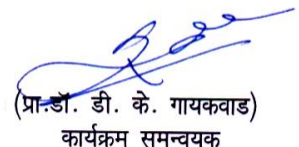 (प्रा.डॉ. डी. के. गायकवाड)
कार्यक्रम समन्वयक